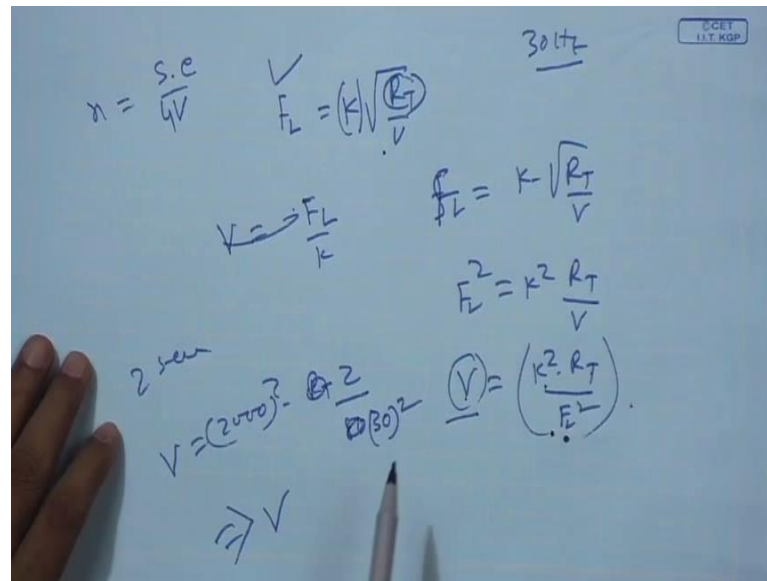 ©CET
I.I.T. KGP
30 Hz
n = S.e / 4V
F_L = (K) √(R_T / V)
f_L = K √(R_T / V)
V = F_L / K
F_L² = K² R_T / V
2 sec
V = (2000)² · 2 / (30)²
V = (K² · R_T / F_L²)
⇒ V